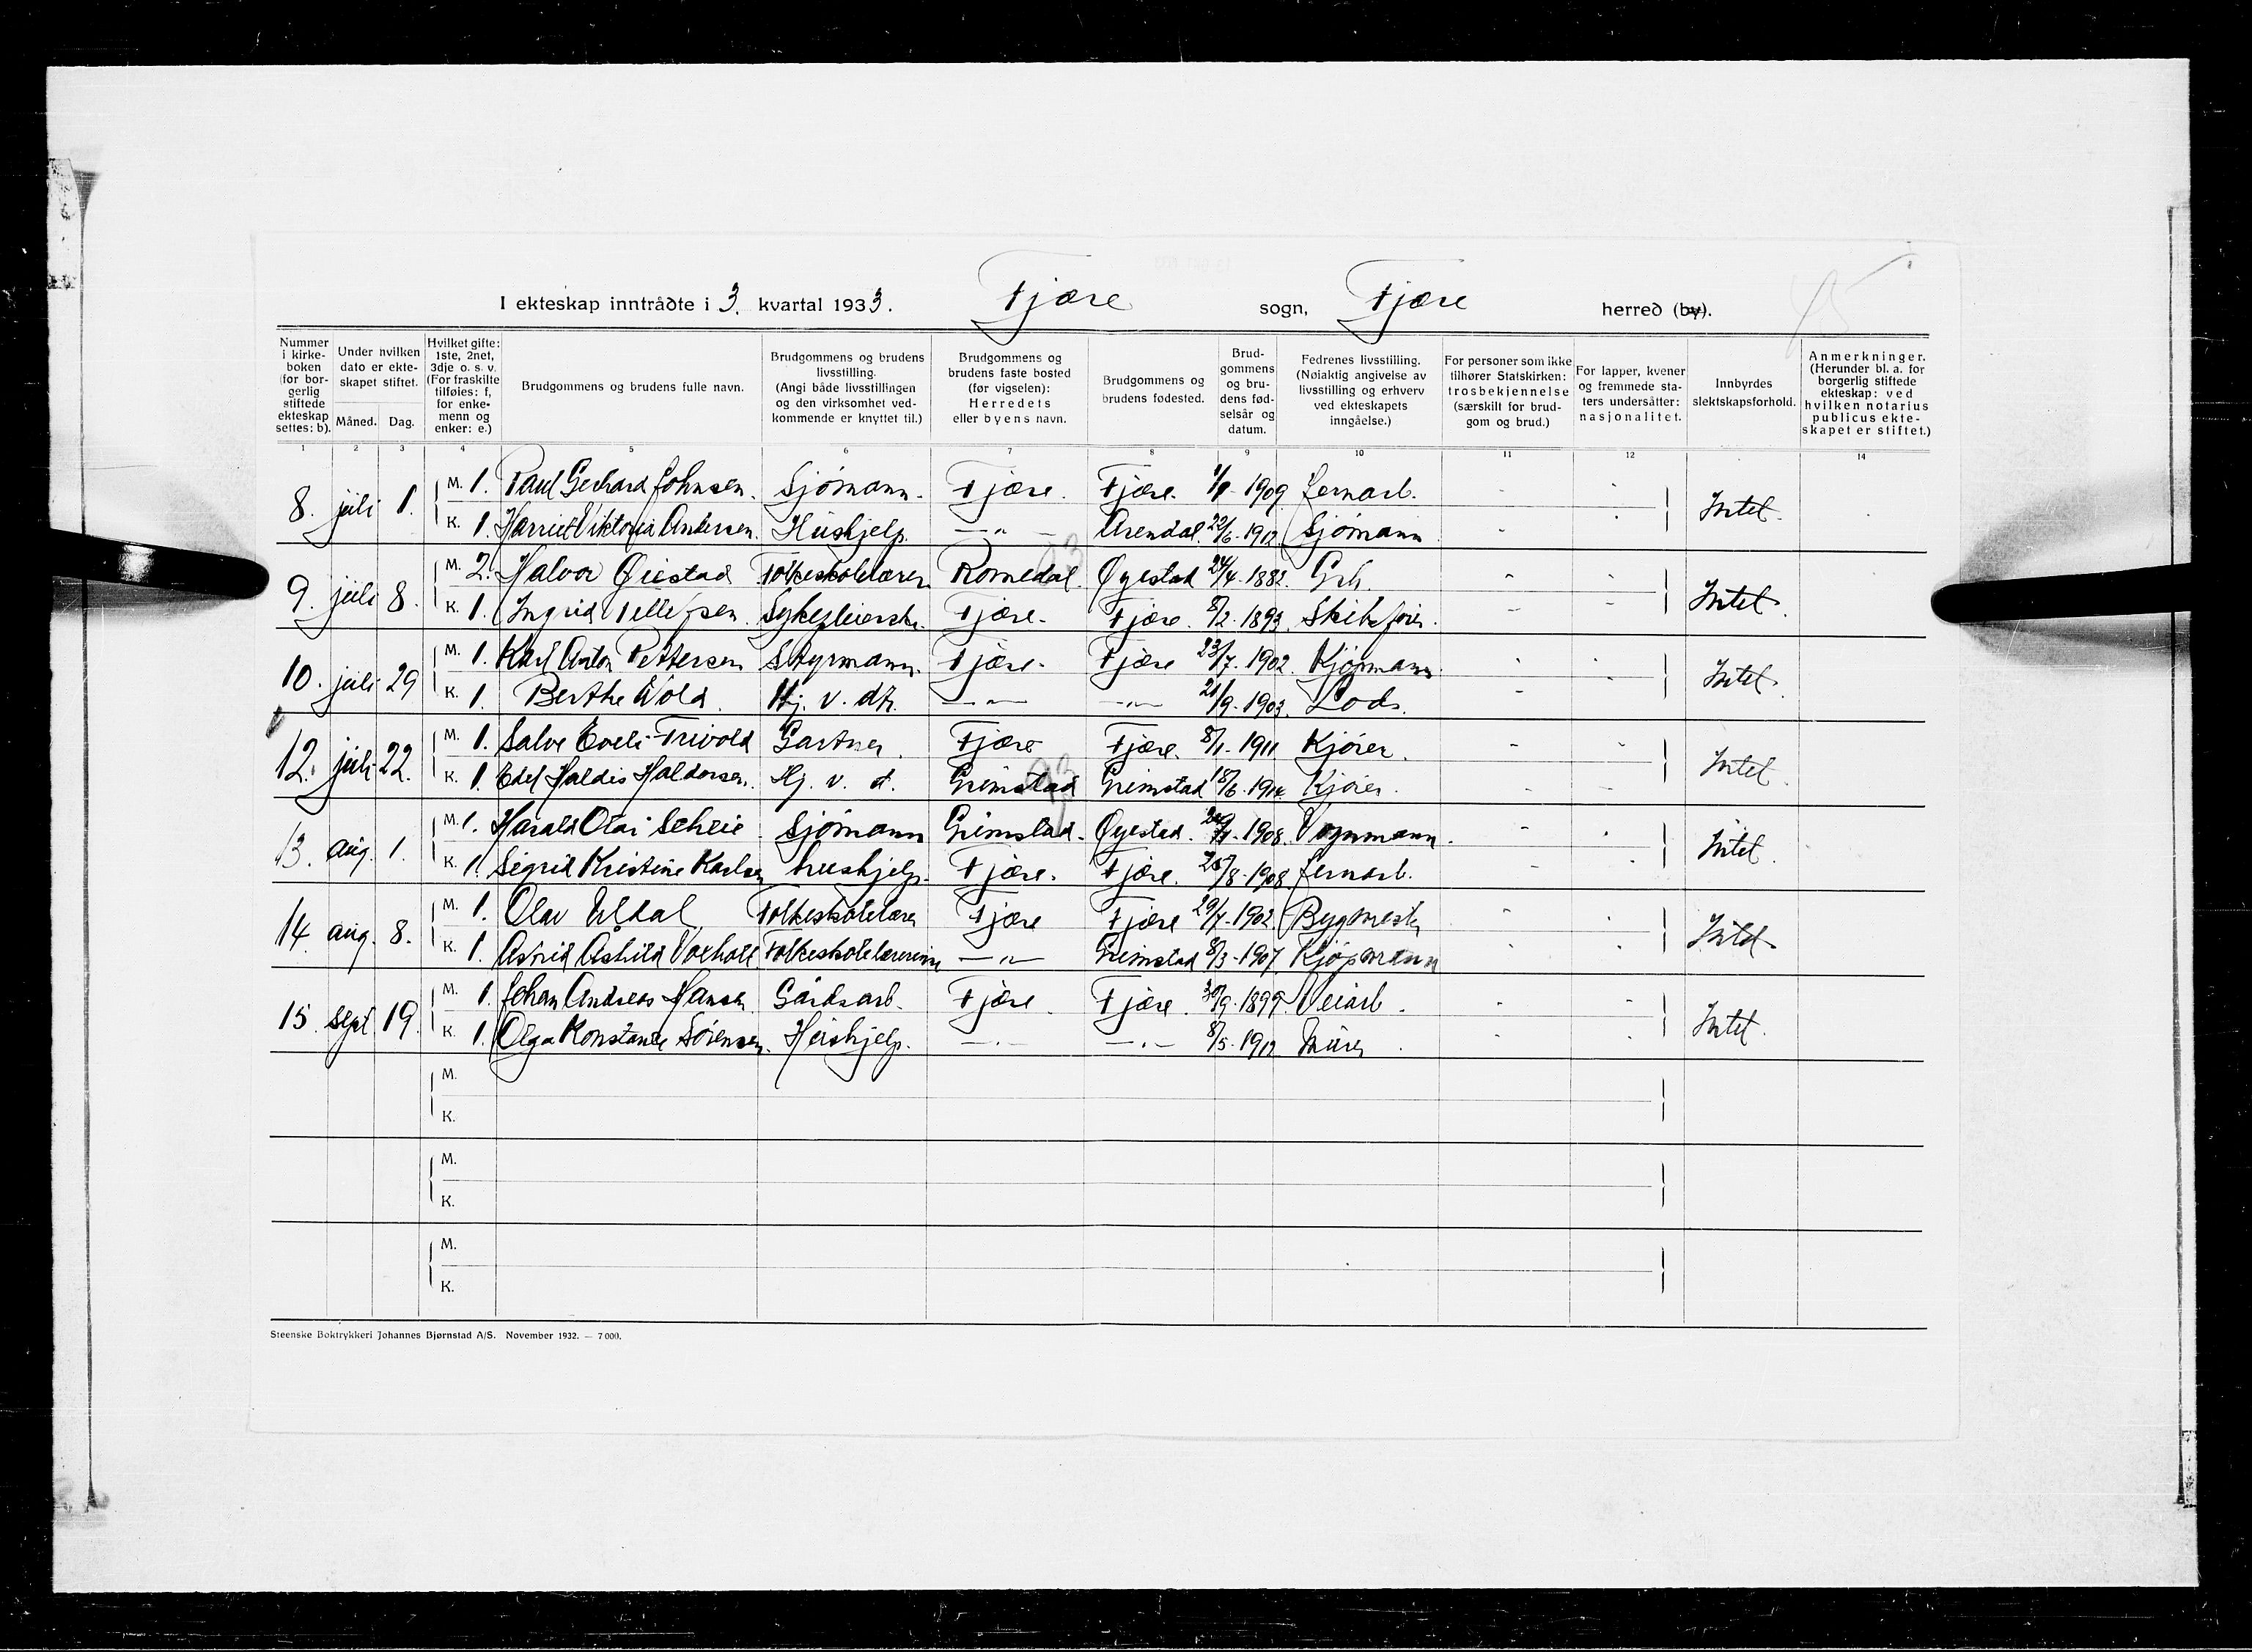 I ekteskap inntrådte i 3. kvartal 1933. Fjære sogn, Fjære herred (by).
Nummer i kirkeboken (for borgerlig stiftede ekteskap settes: b).
Under hvilken dato er ekteskapet stiftet.
Måned. Dag.
Hvilket gifte: 1ste, 2net, 3dje o. s. v. (For fraskilte tilføies: f, for enkemenn og enker: e.)
Brudgommens og brudens fulle navn.
Brudgommens og brudens livsstilling. (Angi både livsstillingen og den virksomhet vedkommende er knyttet til.)
Brudgommens og brudens faste bosted (før vigselen): Herredets eller byens navn.
Brudgommens og brudens fødested.
Brudgommens og brudens fødselsår og datum.
Fedrenes livsstilling. (Nøiaktig angivelse av livsstilling og erhverv ved ekteskapets inngåelse.)
For personer som ikke tilhører Statskirken: trosbekjennelse (særskilt for brudgom og brud.)
For lapper, kvener og fremmede staters undersåtter: nasjonalitet.
Innbyrdes slektskapsforhold.
Anmerkninger. (Herunder bl. a. for borgerlig stiftede ekteskap: ved hvilken notarius publicus ekteskapet er stiftet.)
1 2 3 4 5 6 7 8 9 10 11 12 14
8. juli 1. M. 1. Paul Gerhard Johnsen. Sjømann. Fjære. Fjære. 1909 Jernarb. Intet.
K. 1. Harriet Viktoria Andersen. Hushjelp. —"— Arendal. 22/6. 1912. Sjømann
9. juli 8. M. 2. Halvor Øiestad Folkeskolelærer Romedal. Øyestad 24/4. 1882. Grb. Intet.
K. 1. Ingrid Tellefsen. Sykepleierske. Fjære. Fjære. 8/2. 1893. Skibsfører.
10. juli 29 M. 1. Karl Anton Pettersen Styrmann. Fjære. Fjære 23/7. 1902. Kjøpmann. Intet.
K. 1. Berthe Wold. Hj. v. dt. —"— —"— 21/9. 1903. Lods.
12. juli 22. M. 1. Salve Eveli Trivold Gartner. Fjære Fjære. 8/1. 1911. Kjører. Intet.
K. 1. Edel Haldis Haldorsen. Hj. v. d. Grimstad Grimstad 18/6. 1914. Kjører.
13. aug. 1. M. 1. Harald Olai Scheie Sjømann Grimstad. Øyestad. 1908. Vognmann. Intet.
K. 1. Sigrid Kristine Karlsen hushjelp. Fjære. Fjære. 25/8. 1908. Jernarb.
14. aug. 8. M. 1. Olav Uldal Folkeskolelærer Fjære Fjære 1902. Bygmester Intet.
K. 1. Astrid Ashild Voxholt. Folkeskolelærerinne —"— Grimstad 8/3. 1907. Kjøpmann
15. sept. 19. M. 1. Johan Andreas Hansen Gårdsarb. Fjære. Fjære. 30/9. 1899. Veiarb. Intet.
K. 1. Olga Konstanse Sørensen. Hushjelp. —"— —"— 8/5. 1912 Murer.
M.
K.
M.
K.
M.
K.
Steenske Boktrykkeri Johannes Bjørnstad A/S. November 1932. — 7000.